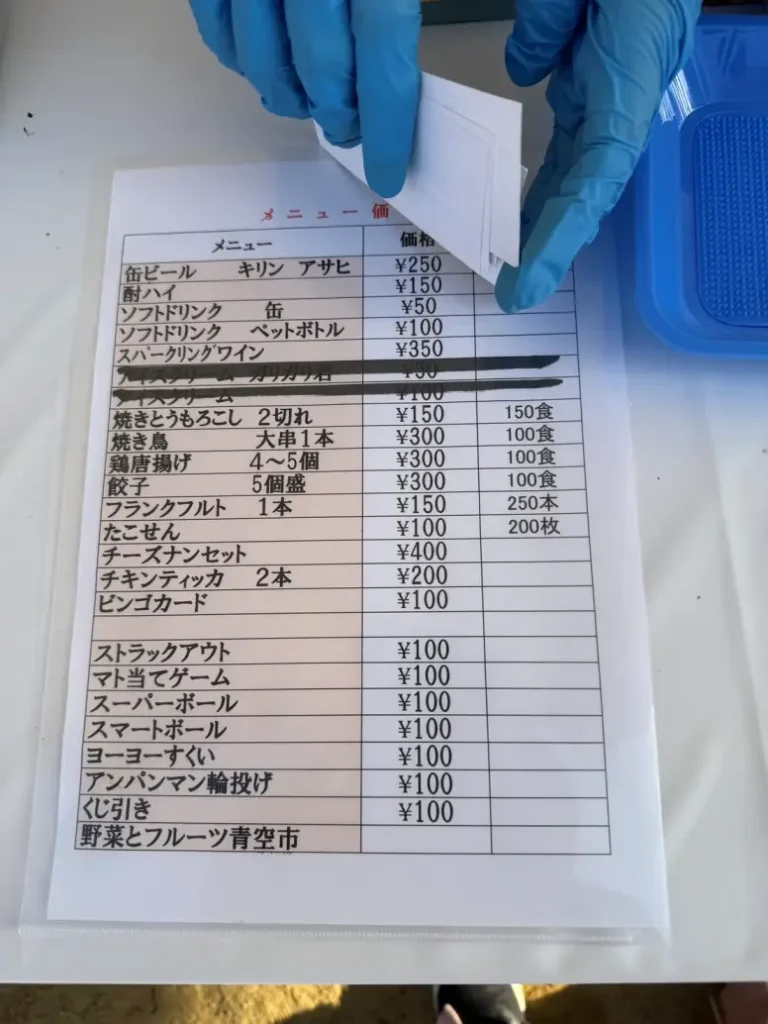 メニュー価
メニュー 価格
缶ビール キリン アサヒ ¥250
酎ハイ ¥150
ソフトドリンク 缶 ¥50
ソフトドリンク ペットボトル ¥100
スパークリングワイン ¥350
アイスクリーム ガリガリ君 ¥50
アイスクリーム ¥100
焼きとうもろこし 2切れ ¥150 150食
焼き鳥 大串1本 ¥300 100食
鶏唐揚げ 4～5個 ¥300 100食
餃子 5個盛 ¥300 100食
フランクフルト 1本 ¥150 250本
たこせん ¥100 200枚
チーズナンセット ¥400
チキンティッカ 2本 ¥200
ビンゴカード ¥100
ストラックアウト ¥100
マト当てゲーム ¥100
スーパーボール ¥100
スマートボール ¥100
ヨーヨーすくい ¥100
アンパンマン輪投げ ¥100
くじ引き ¥100
野菜とフルーツ青空市